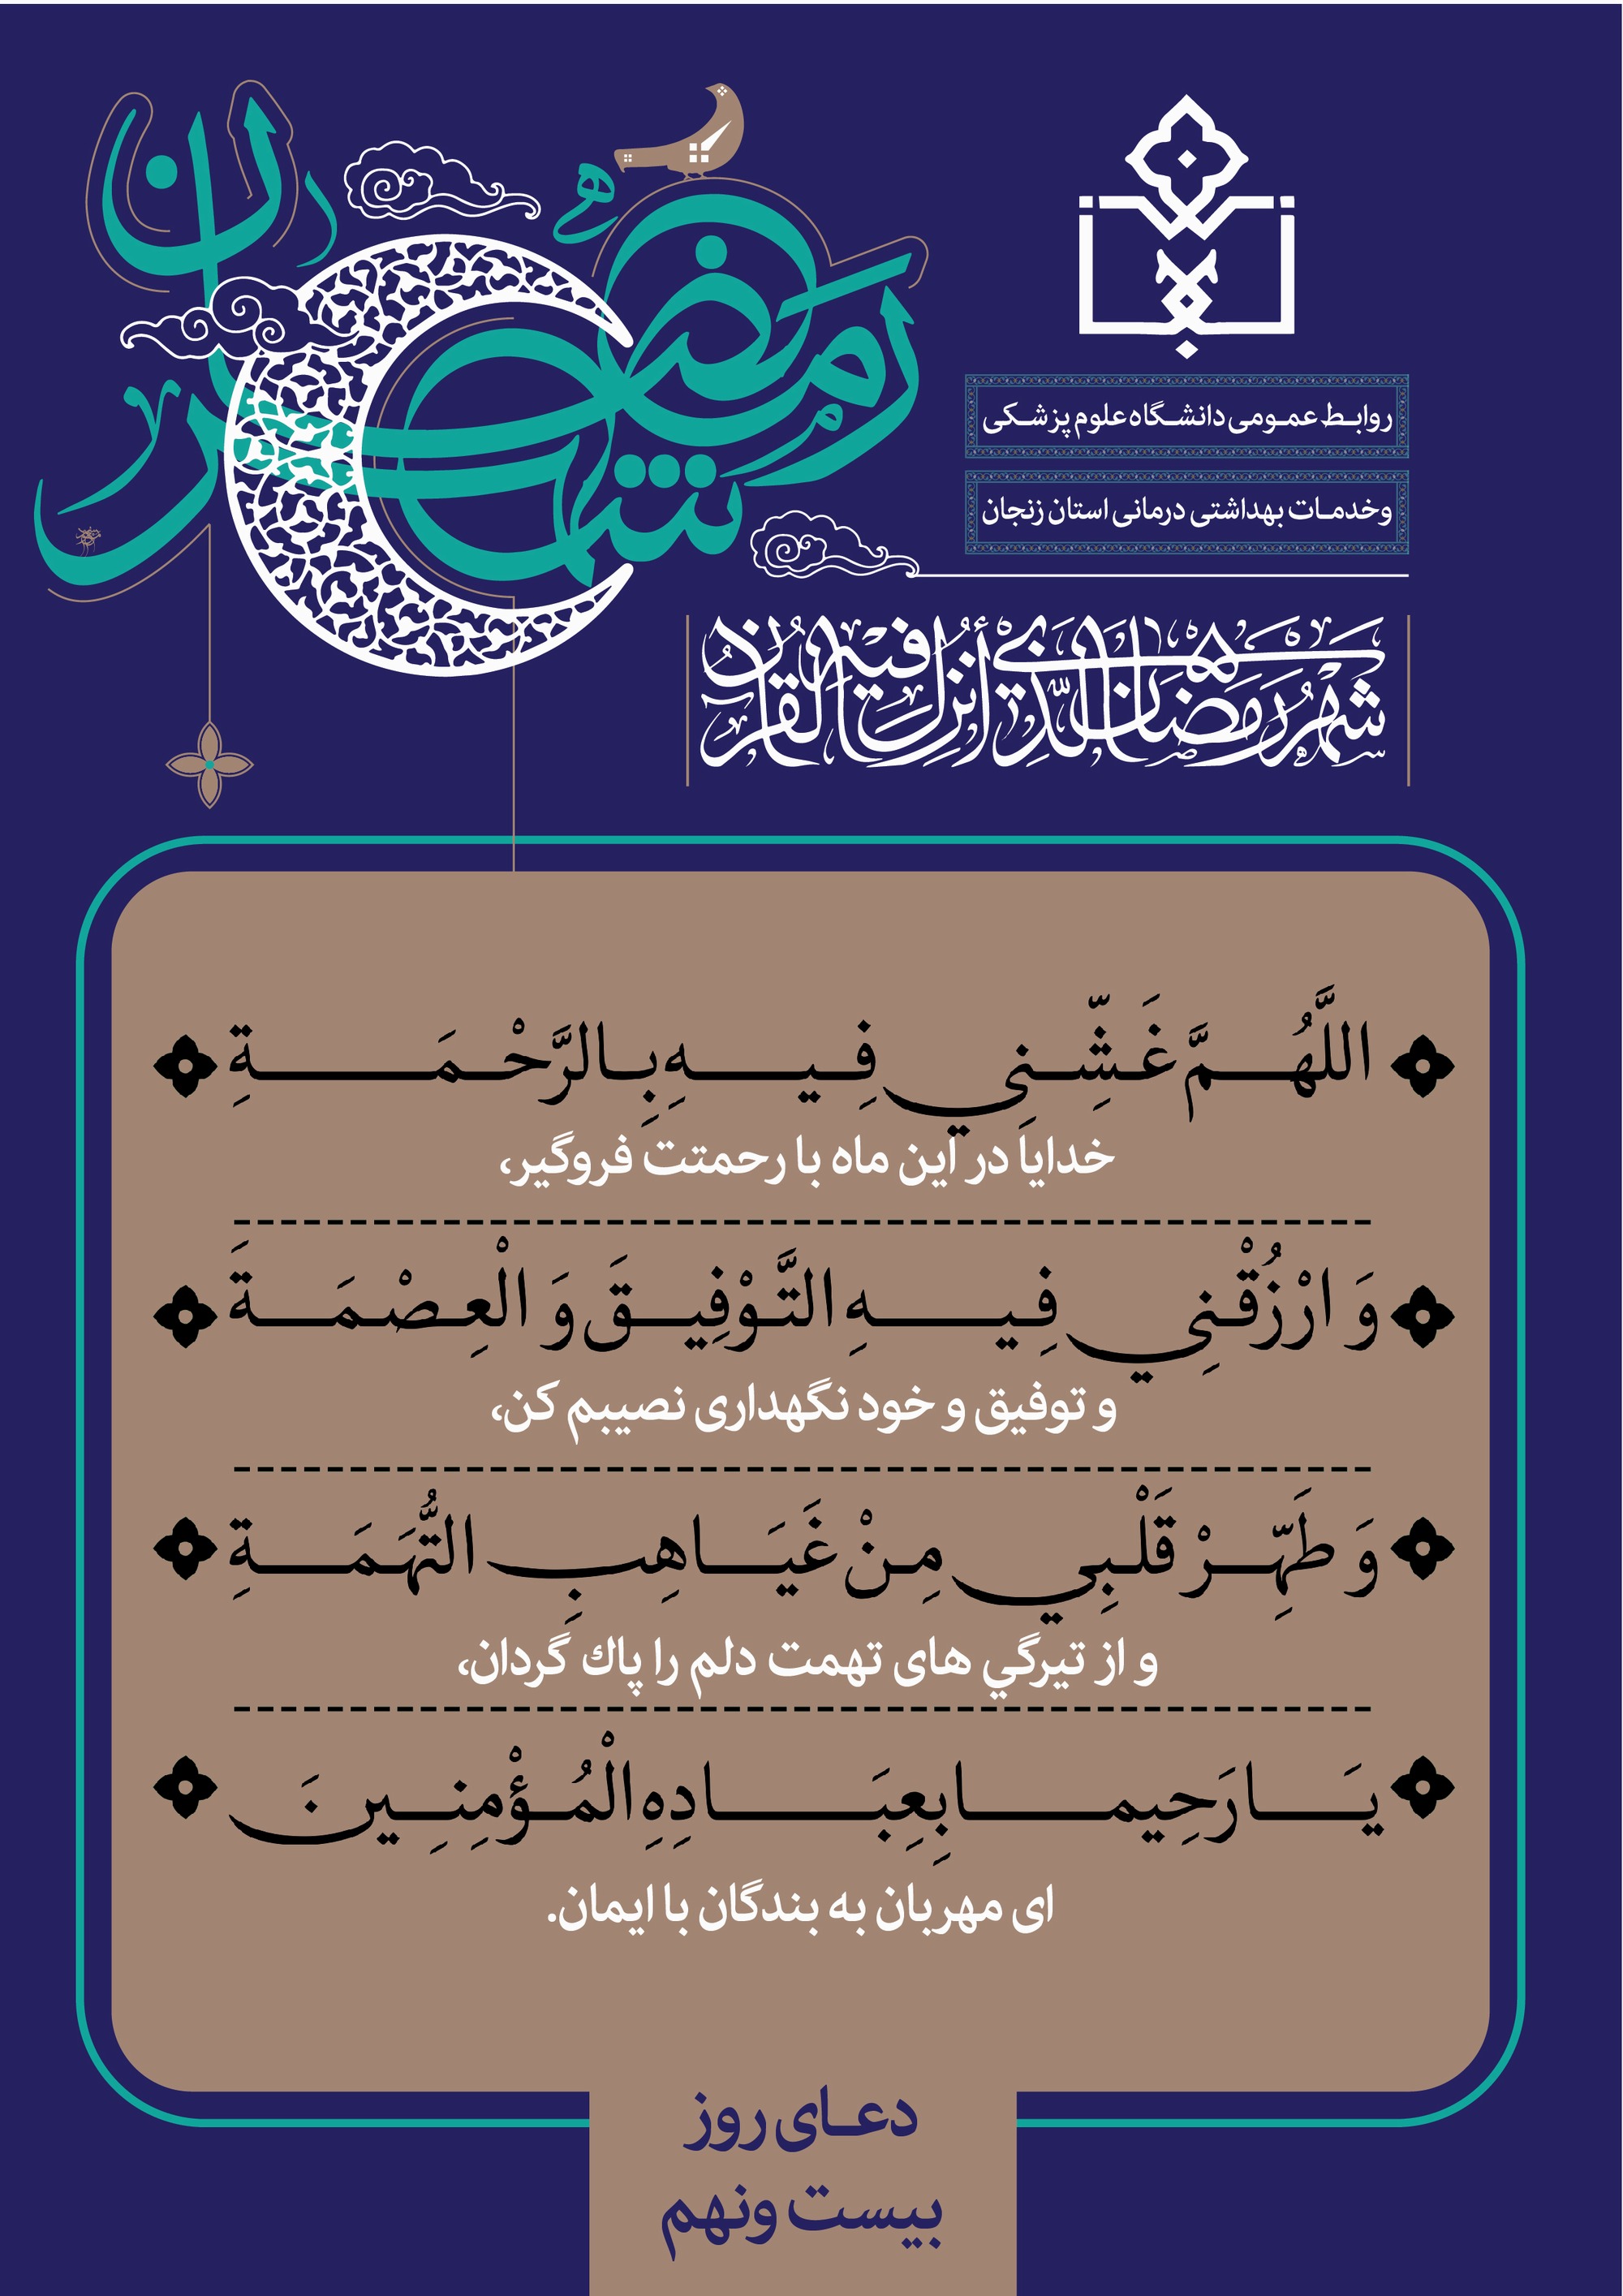 ماه رمضان
شهر رمضان
روابط عمومی دانشگاه علوم پزشکی
وخدمات بهداشتی درمانی استان زنجان
شَهْرُ رَمَضَانَ الَّذِي أُنْزِلَ فِيهِ الْقُرْآنُ
اللَّهُمَّ غَشِّنِي فِيهِ بِالرَّحْمَةِ
خدایا در این ماه با رحمتت فروگیر،
وَ ارْزُقْنِي فِيهِ التَّوْفِيقَ وَ الْعِصْمَةَ
و توفیق و خود نگهداری نصیبم کن،
وَ طَهِّرْ قَلْبِي مِنْ غَيَاهِبِ التُّهَمَةِ
و از تیرگي های تهمت دلم را پاك گردان،
يَا رَحِيما بِعِبَادِهِ الْمُؤْمِنِينَ
ای مهربان به بندگان با ایمان.
دعای روز
بیست ونهم